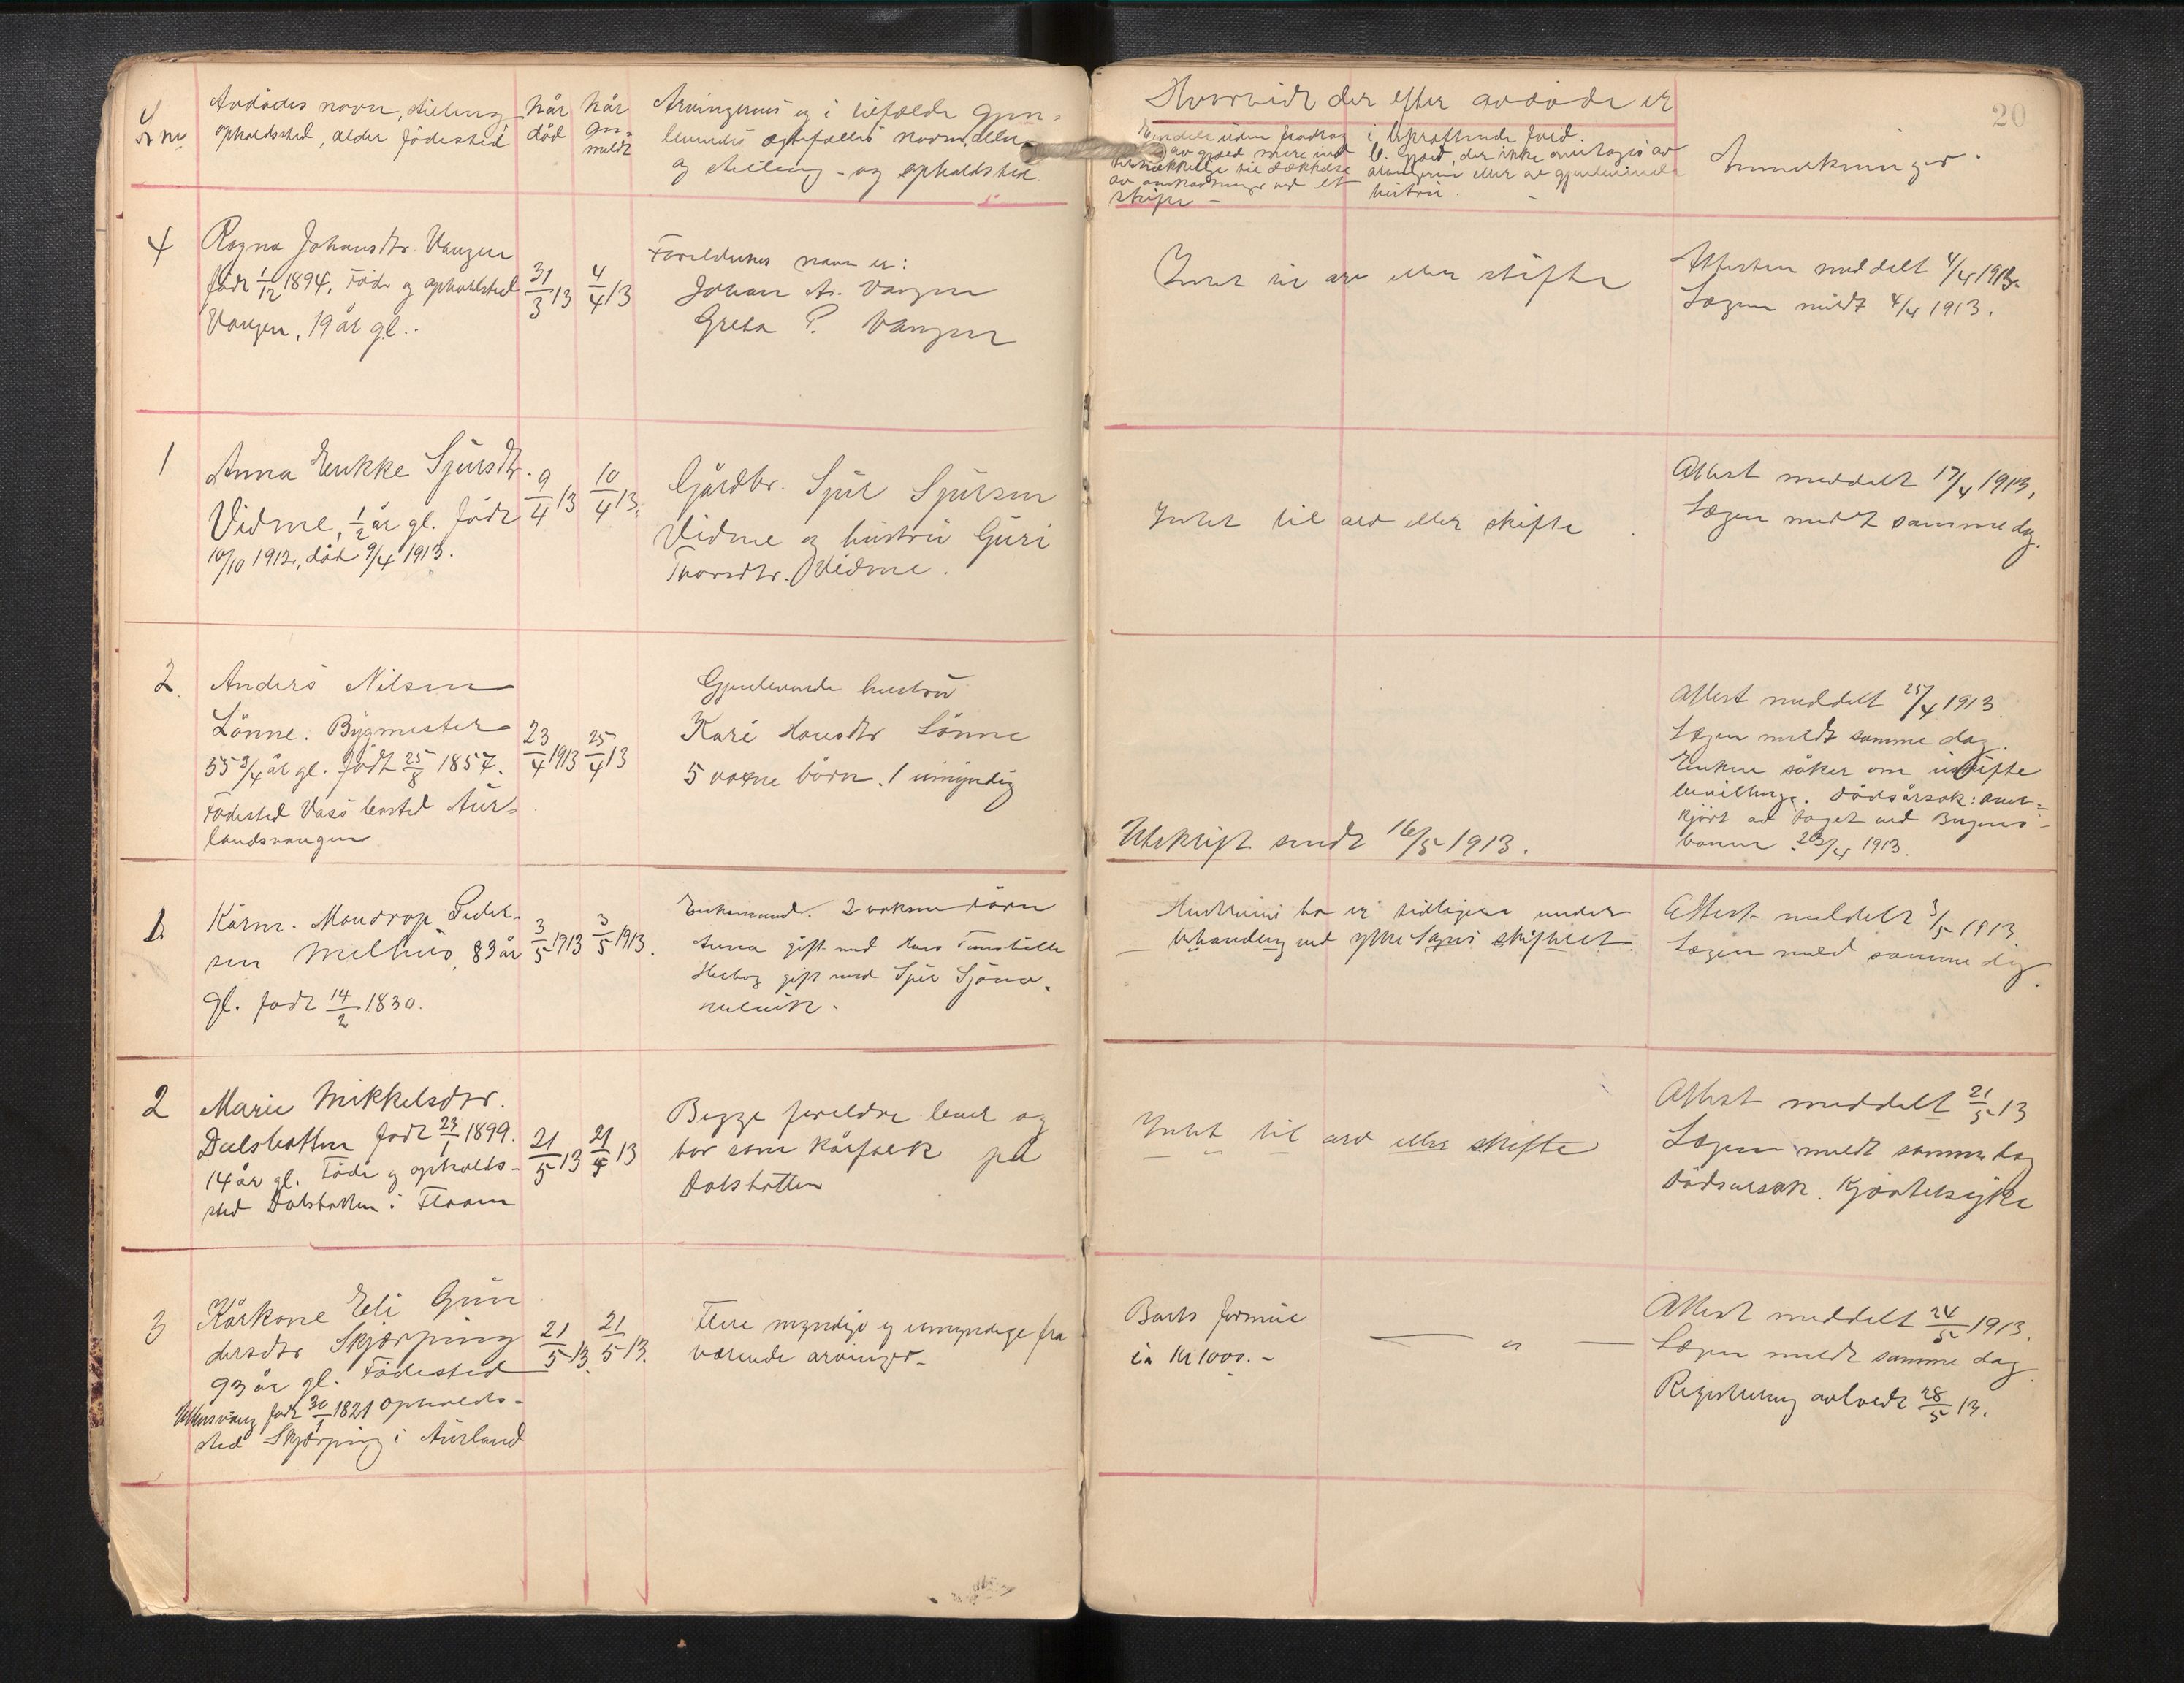 20
Avdödes navn, stilling
opholdssted, alder födested
Når
död
Når
an-
meldt
Arvingernes og i tilfælde gjen-
levendes egtefælles navn, alder
og stilling - og opholdsted.
Hvorvidt der efter avdöde er
Anmerkninger.
4
Ragna Johansdtr. Vangen
födt 1/12 1894. Föde og opholdsted
Vangen, 19 år gl..
31/3 13
4/4 13
Foreldrenes navn er:
Johan As. Vangen
Greta P. Vangen
Intet til arv eller skifte
Attesten meddelt 4/4 1913.
Lægen meldt 4/4 1913.
1
Anna Enkke Sjursdtr.
Vidme, 1/2 år gl. født
10/10 1912, död 9/4 1913.
9/4 13
10/4 13.
Gårdbr. Sjur Sjursen
Vidme og hustru Guri
Thorsdtr. Vidme.
Intet til arv eller skifte.
Attest meddelt 17/4 1913,
Lægen meldt samme dag.
2.
Anders Nilsen
Lönne. Bygmester
55 3/4 år gl. født 25/8 1857.
Födested Voss bosted Aur-
landsvangen
23/4 1913
25/4 13
Gjenlevende hustru
Kari Hansdtr Lönne
5 voxne börn. 1 umyndig
Utskrift sendt 16/5 1913.
Attest meddelt 25/4 1913.
Lægen meldt samme dag.
Enken söker om uskifte
bevillinge. Dödsårsak: over-
kjört av toget ved Bergens-
banen 23/4 1913.
1.
Kårm. Mandrop Peder-
sen Melhus, 83 år
gl. født 14/2 1830.
3/5 1913
3/5 1913.
Enkemand. 2 voksne börn
Anna gift med Hans
gift med Sjur
Hustruens bo er tidligere under
behandling ved ytre Sogns skifteret.
Attest meddelt 3/5 1913
Lægen meld samme dag.
2
Marie Mikkelsdtr.
Dalsbotten født 29/1 1899.
14 år gl. Föde og opholds-
sted Dalsbotten i Flaam
21/5 13
21/5 13
Begge foreldre lever og
bor som kårfolk på
Dalsbotten
Intet til arv eller skifte
Attest meddelt 21/5 13
Lægen meldt samme dag
Dödsarsak. Kjertelsyke
3
Kårkone Eli Gun
dersdtr Skjærping
93 år gl. Födested
Ullensvang født 30/1 1821 opholds-
sted Skjærping i Aurland
21/5 13.
21/5 13.
Flere myndige og umyndige fra
værende arvinger-
Boets formue
ca Kr 1000.-
— " —
Attest meddelt 24/5 1913.
Lægen meldt samme dag.
Registrering avholdt 28/5 13.